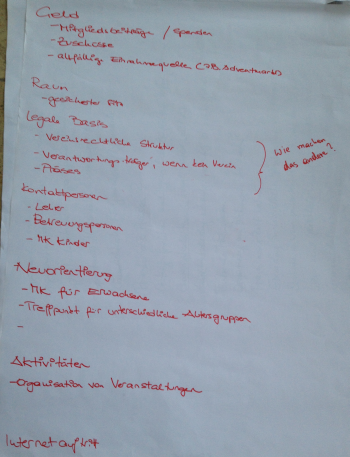 Geld
- Mitgliedsbeiträge / Spenden
- Zuschüsse
- allfällige Einnahmequellen (zB Adventmarkt)
Raum
- gesicherter
Legale Basis
- Vereinsrechtliche Struktur
- Verantwortungsträger, wenn kein Verein
- Präses
Wie machen
das andere?
Kontaktpersonen
- Leiter
- Betreuungspersonen
- MK Kinder
Neuorientierung
- MK für Erwachsene
- Treffpunkt für unterschiedliche Altersgruppen
-
Aktivitäten
- Organisation von Veranstaltungen
Internetauftritt